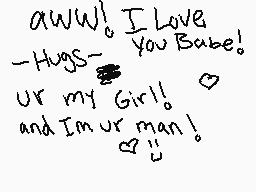 aww! I Love
you Babe!
-Hugs-
ur my Girl!
and Im ur man!